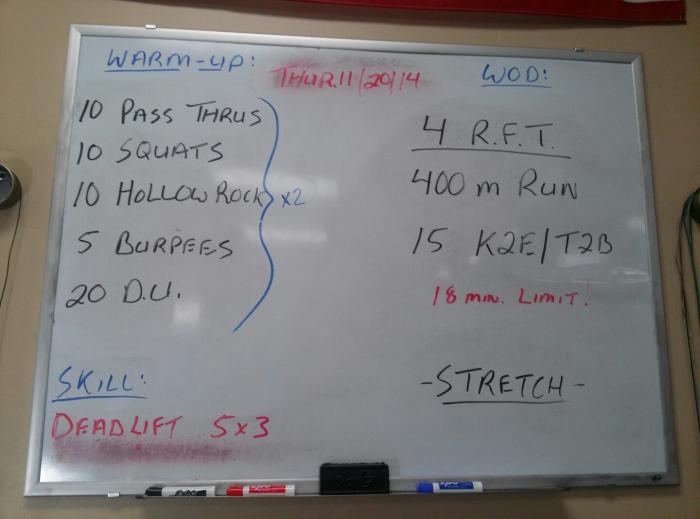 WARM-UP:
THUR. 11/20/14
WOD:
10 PASS THRUS
10 SQUATS
10 HOLLOW ROCK
5 BURPEES
20 D.U.
x2
4 R.F.T.
400 m RUN
15 K2E/T2B
18 MIN. LIMIT!
SKILL:
DEADLIFT 5x3
-STRETCH-
EXPO